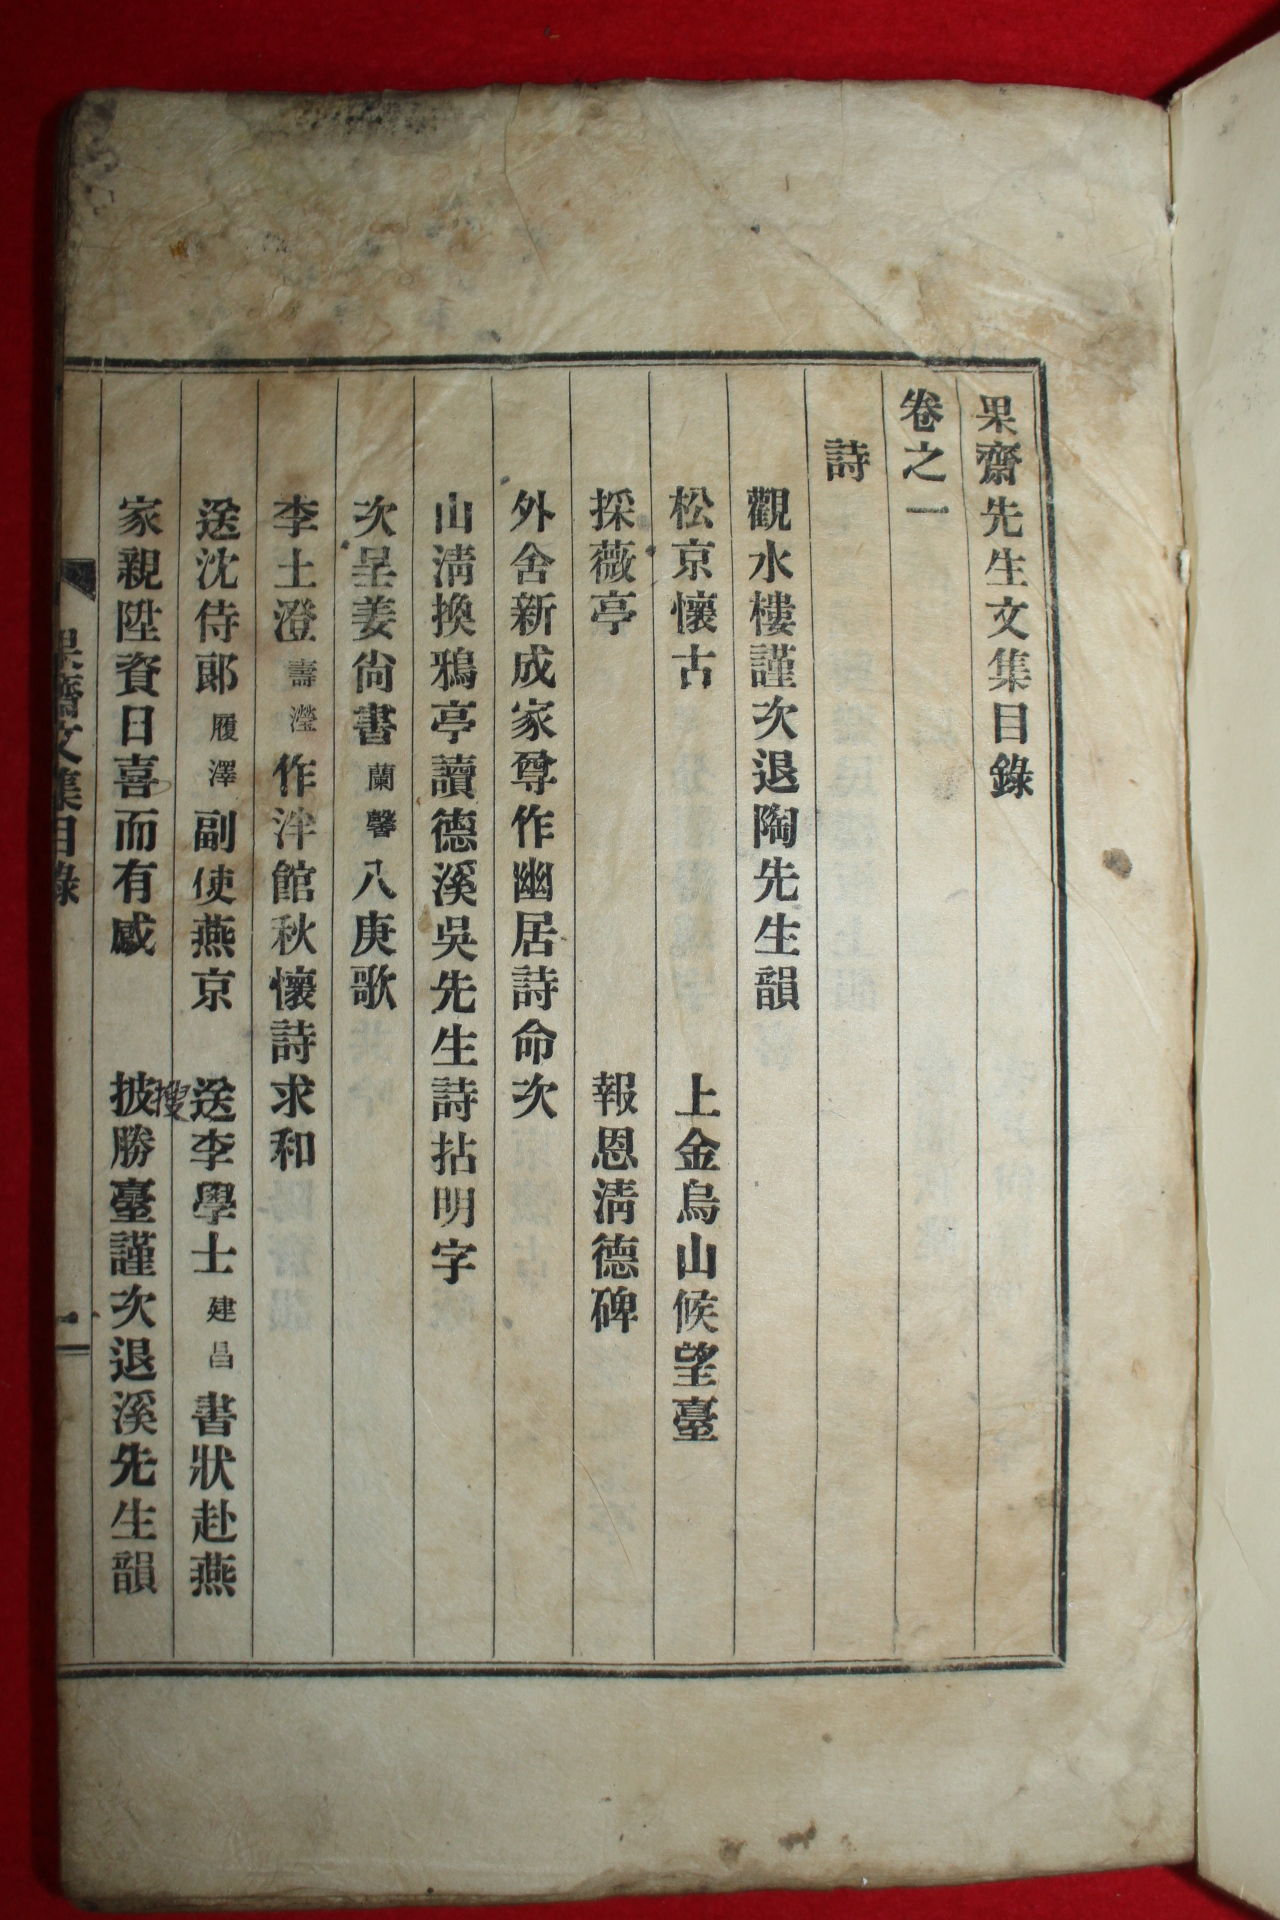 果齋先生文集目錄
卷之一
詩
觀水樓謹次退陶先生韻
松京懷古　上金烏山候望臺
採薇亭　報恩淸德碑
外舍新成家尊作幽居詩命次
山淸換鵝亭讀德溪吳先生詩拈明字
次呈姜尙書蘭馨八庚歌
李士澄壽瀅作泮館秋懷詩求和
送沈侍郞履澤副使燕京　送李學士建昌書狀赴燕
搜
家親陞資日喜而有感　披勝臺謹次退溪先生韻
果齋文集目錄
一